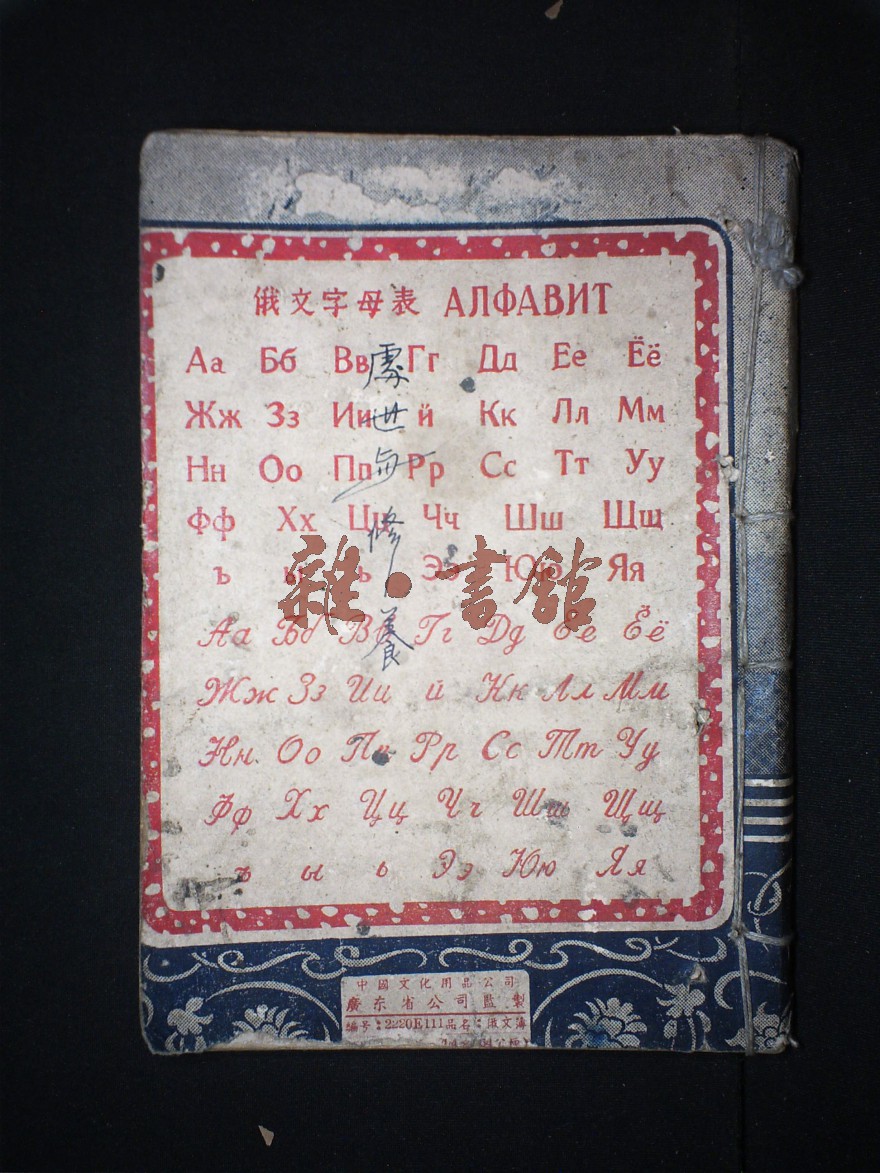 俄文字母表 АЛФАВИТ
Аа Бб Вв Гг Дд Ее Ёё
Жж Зз Ии й Кк Лл Мм
Нн Оо Пп Рр Сс Тт Уу
Фф Хх Цц Чч Шш Щщ
ъ ы ь Ээ Юю Яя
處世与修養
雜·書館
Аа Бб Вв Гг Дд Ее Ёё
Жж Зз Ии й Кк Лл Мм
Нн Оо Пп Рр Сс Тт Уу
Фф Хх Цц Чч Шш Щщ
ъ ы ь Ээ Юю Яя
中國文化用品公司
廣东省公司監製
編号:2220E111品名:俄文簿